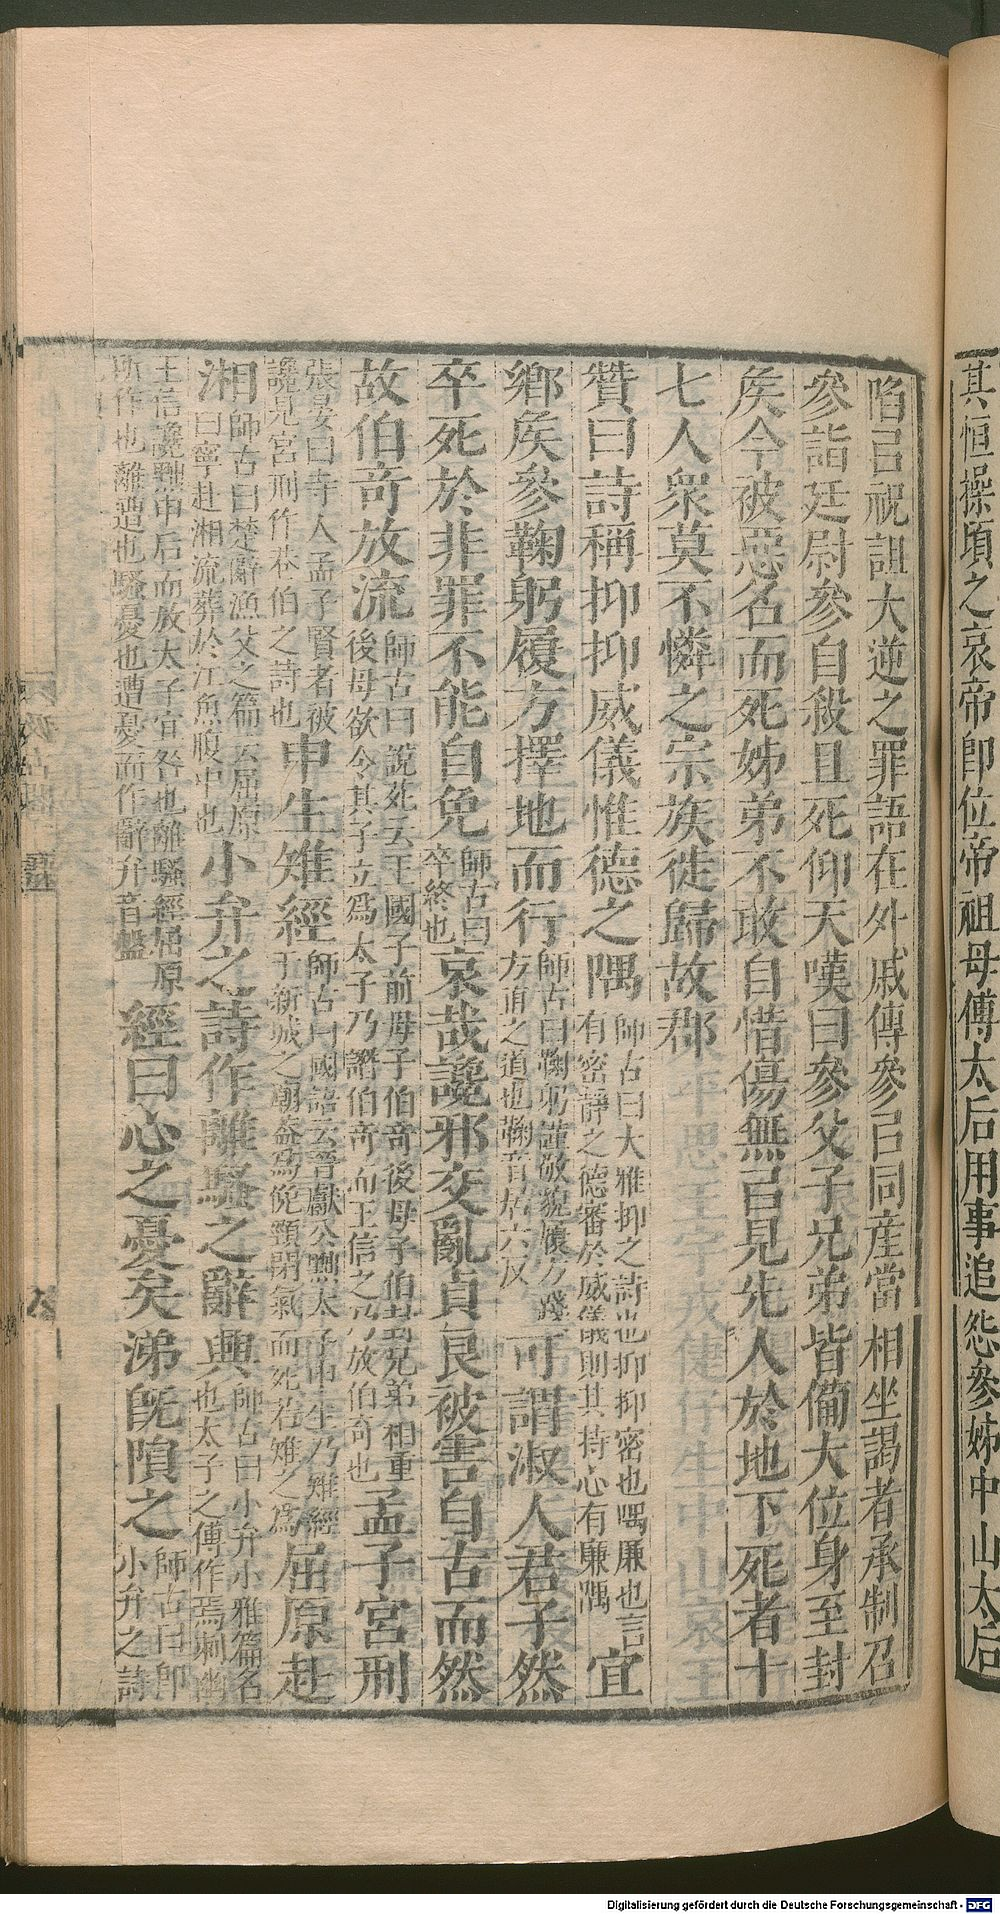 其恒操頃之哀帝即位帝祖母傅太后用事追怨參姊中山太后
陷㠯祝詛大逆之罪語在外戚傳參㠯同產當相坐謁者承制召
參詣廷尉參自殺且死仰天嘆曰參父子兄弟皆備大位身至封
矦今被惡名而死姊弟不敢自惜傷無㠯見先人於地下死者十
七人衆莫不憐之宗族徙歸故郡
贊曰詩稱抑抑威儀惟德之隅師古曰大雅抑之詩也抑抑密也隅廉也言有密靜之德審於威儀則其持心有廉隅宜
鄉矦參鞠躬履方擇地而行師古曰鞠躬謹敬貌履方踐方直之道也鞠音居六反可謂淑人君子然
卒死於非罪不能自免師古曰卒終也哀哉讒邪交亂貞良被害自古而然
故伯奇放流師古曰說苑云王國子前母子伯奇後母子伯封兄弟相重後母欲令其子立爲太子乃譖伯奇而王信之乃放伯奇也孟子宮刑
張晏曰寺人孟子賢者被讒見宮刑作巷伯之詩也申生雉經師古曰國語云晉獻公黜太子申生乃雉經于新城之廟蓋爲俛頸閉氣而死若雉之爲屈原赴
湘師古曰楚辭漁父之篇云屈原曰寧赴湘流葬於江魚腹中也小弁之詩作離騷之辭興師古曰小弁小雅篇名也太子之傅作焉刺幽
王信讒黜申后而放太子宜咎也離騷經屈原所作也離遭也騷憂也遭憂而作辭弁音盤經曰心之憂矣涕旣隕之師古曰卽小弁之詩
Digitalisierung gefördert durch die Deutsche Forschungsgemeinschaft - DFG